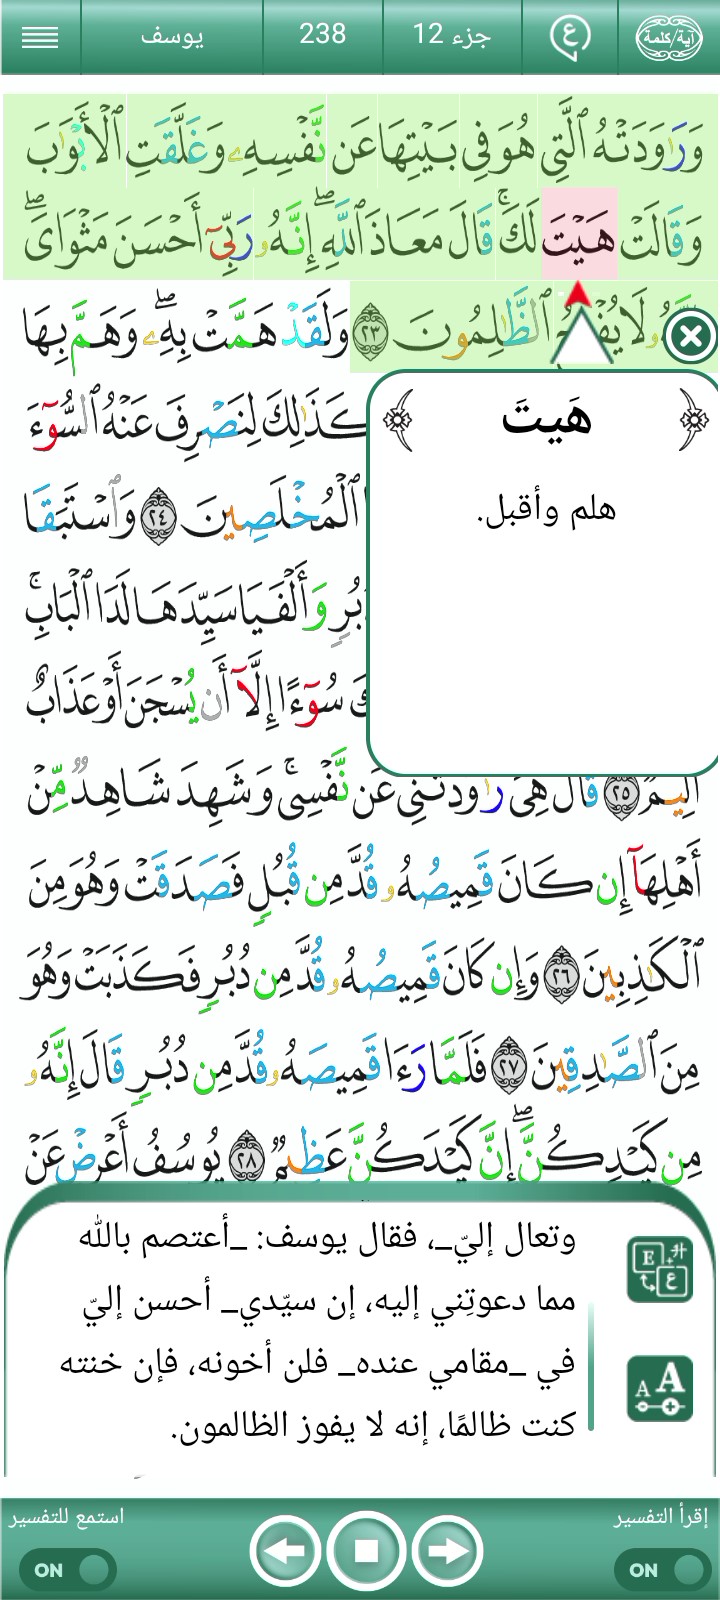 آية/كلمة
ع
جزء 12
238
يوسف
وَرَٰوَدَتْهُ ٱلَّتِى هُوَ فِى بَيْتِهَا عَن نَّفْسِهِۦ وَغَلَّقَتِ ٱلْأَبْوَٰبَ
وَقَالَتْ هَيْتَ لَكَ ۚ قَالَ مَعَاذَ ٱللَّهِ ۖ إِنَّهُۥ رَبِّىٓ أَحْسَنَ مَثْوَاىَ ۖ
لَا ٱلظَّٰلِمُونَ ٢٣ وَلَقَدْ هَمَّتْ بِهِۦ ۖ وَهَمَّ بِهَا
كَذَٰلِكَ لِنَصْرِفَ عَنْهُ ٱلسُّوٓءَ
ٱلْمُخْلَصِينَ ٢٤ وَٱسْتَبَقَا
وَأَلْفَيَا سَيِّدَهَا لَدَا ٱلْبَابِ ۚ
سُوٓءًا إِلَّآ أَن يُسْجَنَ أَوْ عَذَابٌ
أَلِيمٌ ٢٥ قَالَ هِىَ رَٰوَدَتْنِى عَن نَّفْسِى ۚ وَشَهِدَ شَاهِدٌ مِّنْ
أَهْلِهَآ إِن كَانَ قَمِيصُهُۥ قُدَّ مِن قُبُلٍ فَصَدَقَتْ وَهُوَ مِنَ
ٱلْكَٰذِبِينَ ٢٦ وَإِن كَانَ قَمِيصُهُۥ قُدَّ مِن دُبُرٍ فَكَذَبَتْ وَهُوَ
مِنَ ٱلصَّٰدِقِينَ ٢٧ فَلَمَّا رَءَا قَمِيصَهُۥ قُدَّ مِن دُبُرٍ قَالَ إِنَّهُۥ
مِن كَيْدِكُنَّ ۖ إِنَّ كَيْدَكُنَّ عَظِيمٌ ٢٨ يُوسُفُ أَعْرِضْ عَنْ
هَيتَ
هلم وأقبل.
وتعال إليّ_، فقال يوسف: _أعتصم بالله
مما دعوتِني إليه، إن سيّدي_ أحسن إليّ
في _مقامي عنده_ فلن أخونه، فإن خنته
كنت ظالمًا، إنه لا يفوز الظالمون.
E
ع
A A
إقرأ التفسير
استمع للتفسير
ON
ON